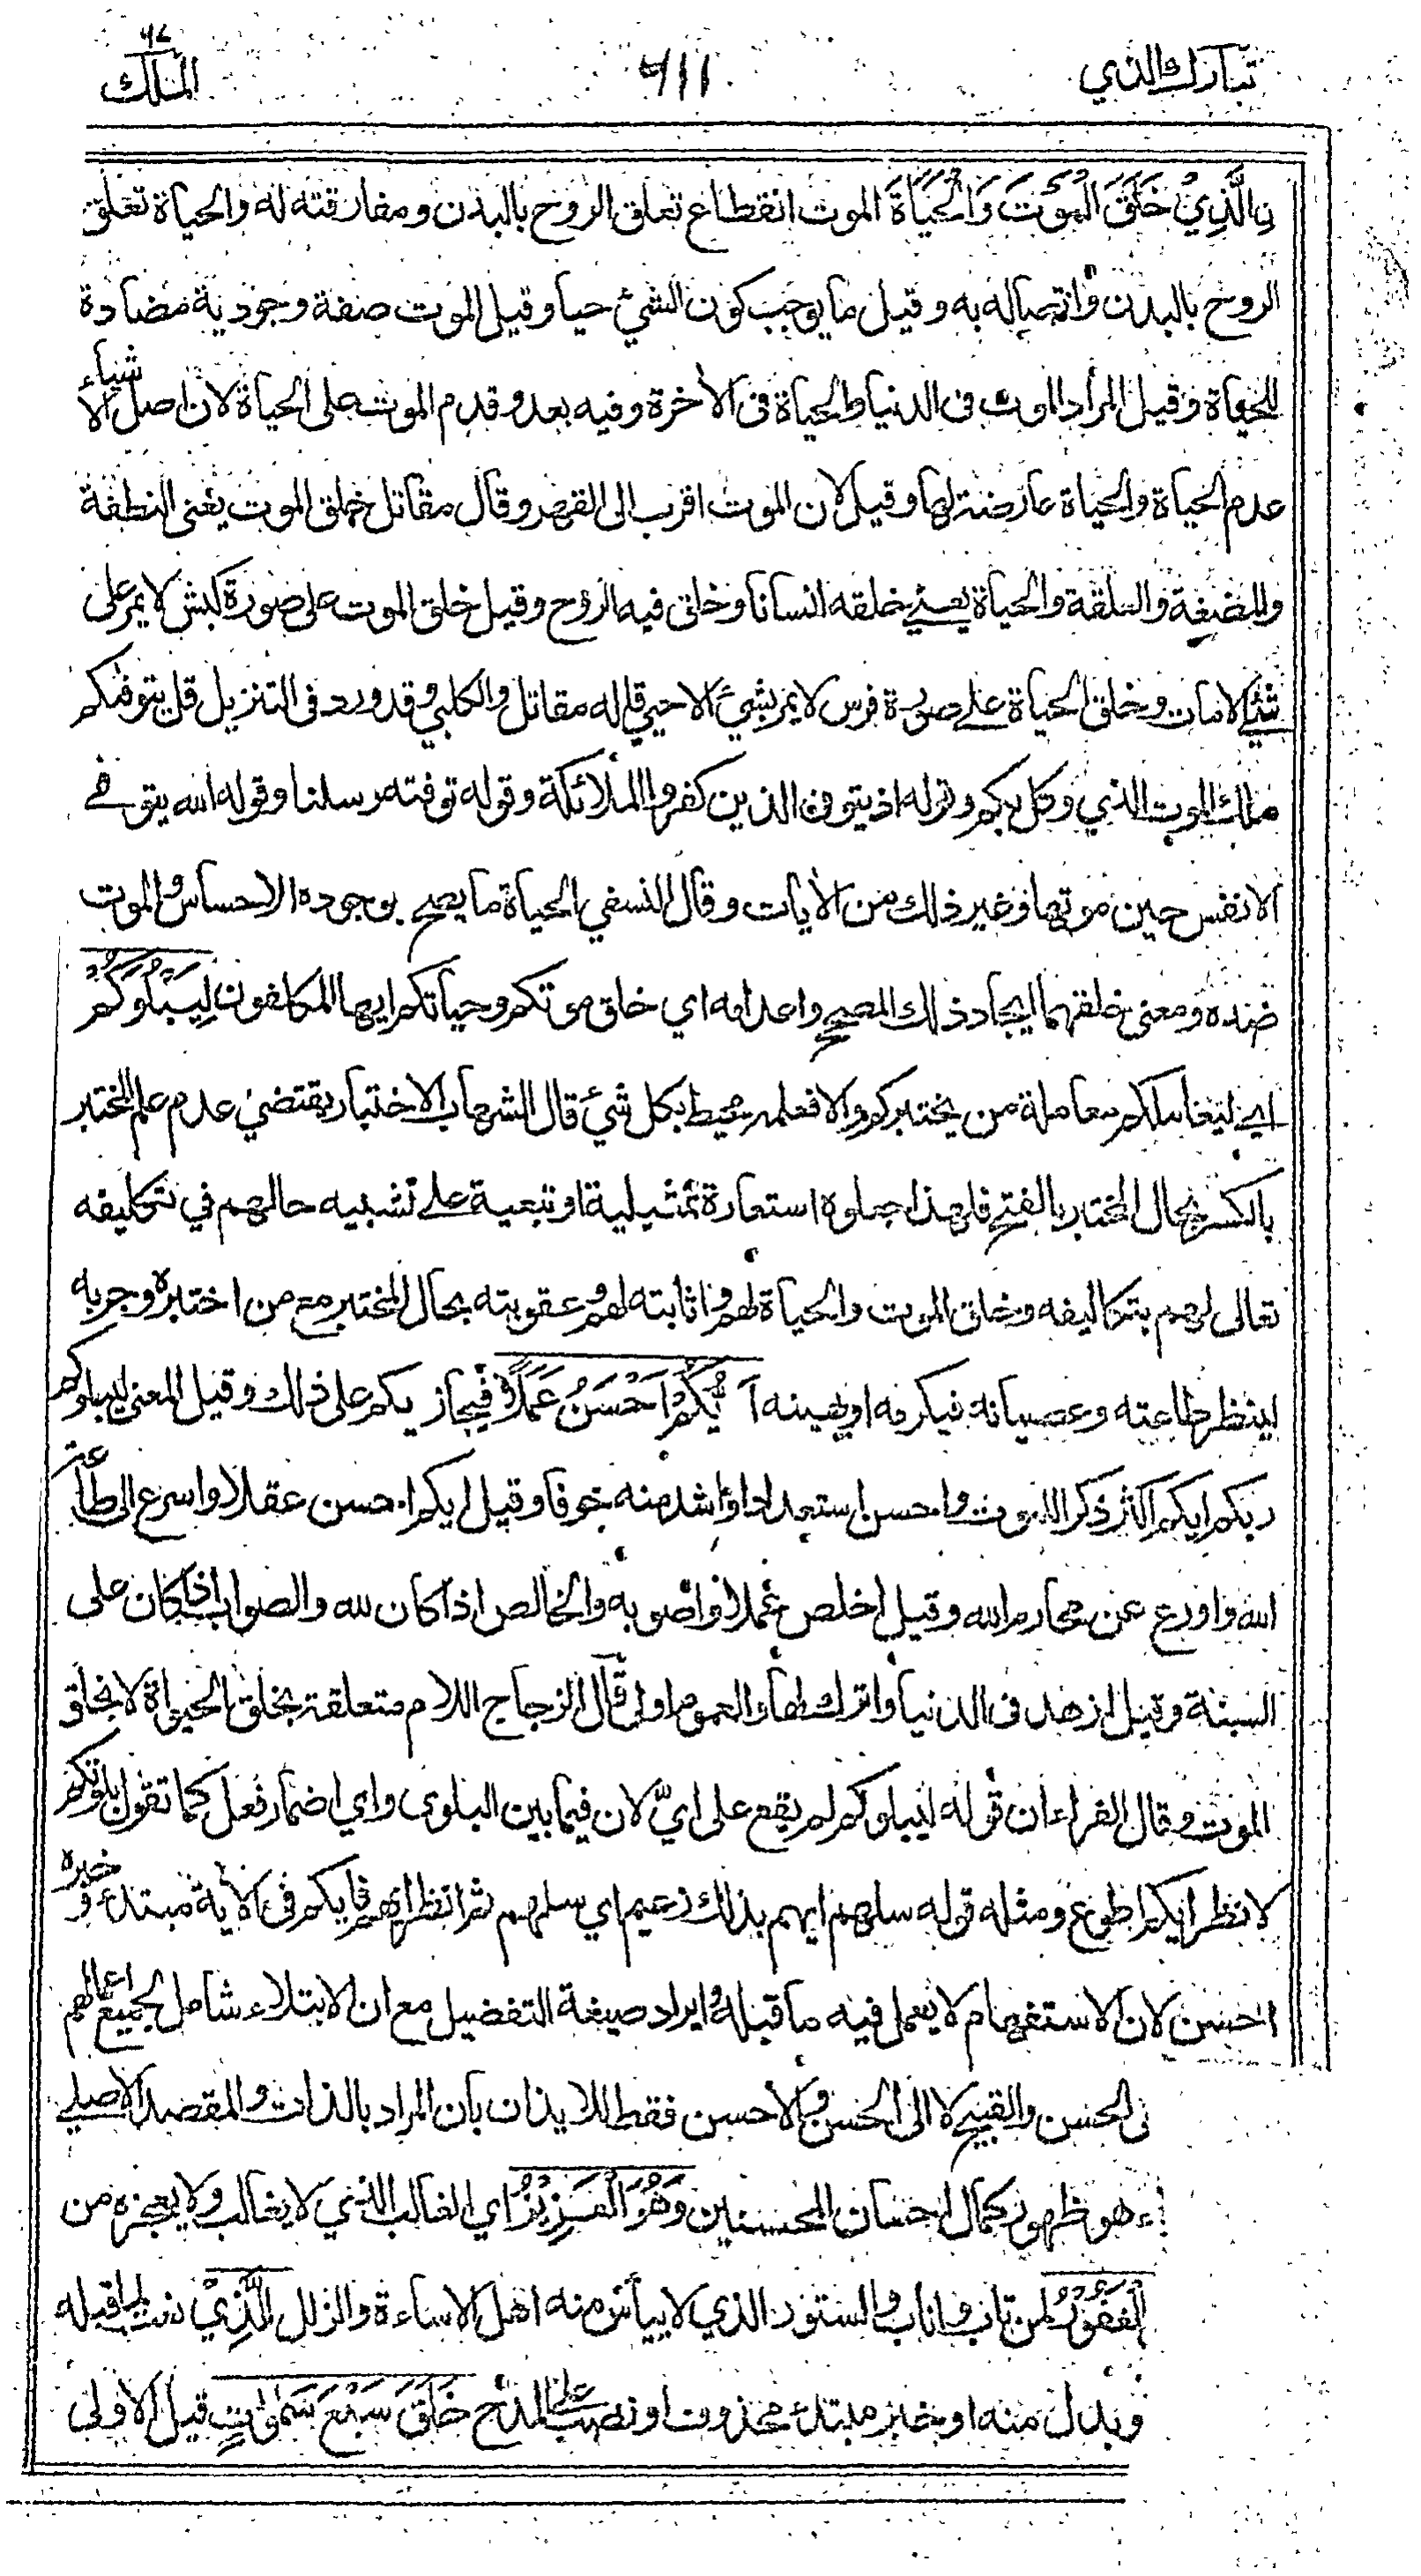 تبارك الذي
٦١١
٦٧
الملك
نِ الَّذِيْ خَلَقَ الْمَوْتَ وَالْحَيَاةَ الموت انقطاع تعلق الروح بالبدن ومفارقته له والحياة تعلق
الروح بالبدن واتصاله به وقيل ما يوجب كون الشئ حيا وقيل الموت صفة وجودية مضادة
للحياة وقيل المراد الموت فى الدنيا والحياة فى الأخرة وفيه بعد وقدم الموت على الحياة لان اصل الاشياء
عدم الحياة والحياة عارضة لها وقيل لان الموت اقرب الى القهر وقال مقاتل خلق الموت يعنى النطفة
والمضغة والعلقة والحياة يعني خلقه انسانا وخلق فيه الروح وقيل خلق الموت على صورة كبش لا يمر على
شئ الا مات وخلق الحياة على صورة فرس لا يمر بشئ الا حيي قاله مقاتل والكلبي وقد ورد فى التنزيل قل يتوفىكم
ملك الموت الذي وكل بكم وقوله اذ يتوفى الذين كفروا الملائكة وقوله توفته رسلنا وقوله الله يتوفى
الانفس حين موتها وغير ذلك من الأيات وقال النسفي الحياة ما يصح بوجوده الاحساس والموت
ضده ومعنى خلقهما ايجاد ذلك المصحح واعدامه اي خلق موتكم وحياتكم ايها المكلفون لِيَبْلُوَكُمْ
اي ليعاملكم معاملة من يختبركم والا فعلمه محيط بكل شئ قال الشهاب الاختبار يقتضي عدم علم المختبر
بالكسر بحال المختبر بالفتح فلهذا جعلوه استعارة تمثيلية او تبعية على تشبيه حالهم في تكليفه
تعالى لهم بتكاليفه وخلق الموت والحياة لهم واثابته لهم وعقوبته بحال المختبر مع من اختبره وجربه
لينظر طاعته وعصيانه فيكرمه او يهينه اَيُّكُمْ اَحْسَنُ عَمَلًا فيجازيكم على ذلك وقيل المعنى ليبلوكم
ربكم ايكم اكثر ذكرا للموت واحسن استعدادا واشد منه خوفا وقيل ايكم احسن عقلا واسرع الى طاعة
الله واورع عن محارم الله وقيل اخلص عملا واصوبه والخالص اذا كان لله والصواب اذا كان على
السنة وقيل ازهد فى الدنيا واترك لها والعموم اولى قال الزجاج اللام متعلقة بخلق الحياة لا بخلق
الموت وقال الفراء ان قوله ليبلوكم لم يقع على ايّ لان فيما بين البلوى واي اضمار فعل كما تقول بلوتكم
لانظر ايكم اطوع ومثله قوله سلهم ايهم بذلك زعيم اي سلهم ثم انظر ايهم فايكم فى الأية مبتدء وخبره
احسن لان الاستفهام لا يعمل فيه ما قبله وايراد صيغة التفضيل مع ان الابتلاء شامل لجميع اعمالهم
لى الحسن والقبيح لا الى الحسن والأحسن فقط للايذان بان المراد بالذات والمقصد الاصلي
هو ظهور كمال احسان المحسنين وَهُوَ الْعَزِيْزُ اي الغالب الذي لا يغالب ولا يعجزه من
الْغَفُوْرُ لمن تاب واناب والستور الذي لا ييأس منه اهل الاساءة والزلل الَّذِيْ نعت لما قبله
وبدل منه او خبر مبتدء محذوف او نصب على المدح خَلَقَ سَبْعَ سَمٰوٰتٍ قيل الاولى